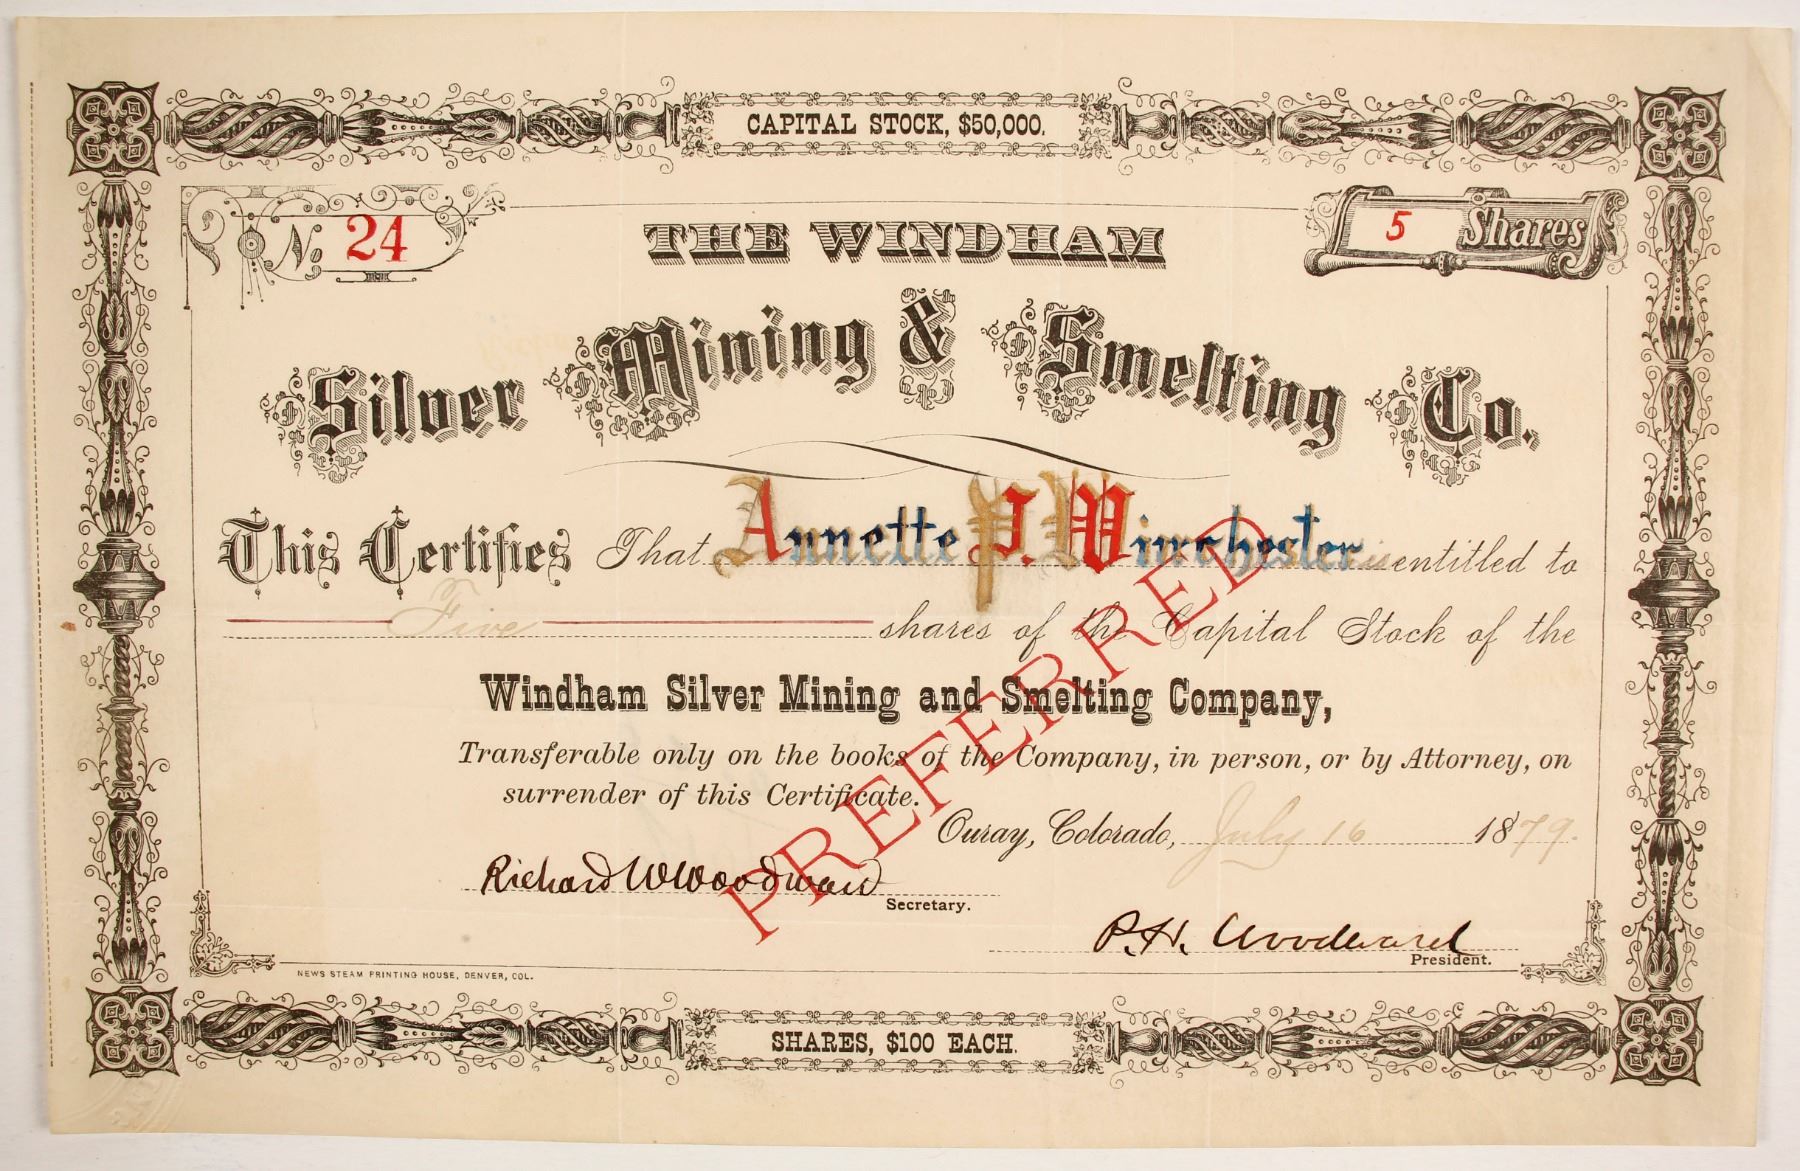 CAPITAL STOCK, $50,000.
No. 24
5 Shares
THE WINDHAM
Silver Mining & Smelting Co.
This Certifies That Annette P. Winchester is entitled to
Five shares of the Capital Stock of the
Windham Silver Mining and Smelting Company,
Transferable only on the books of the Company, in person, or by Attorney, on
surrender of this Certificate.
PREFERRED
Ouray, Colorado, July 16 1879.
Richard W Woodward
Secretary.
P. H. Woodward
President.
NEWS STEAM PRINTING HOUSE, DENVER, COL.
SHARES, $100 EACH.